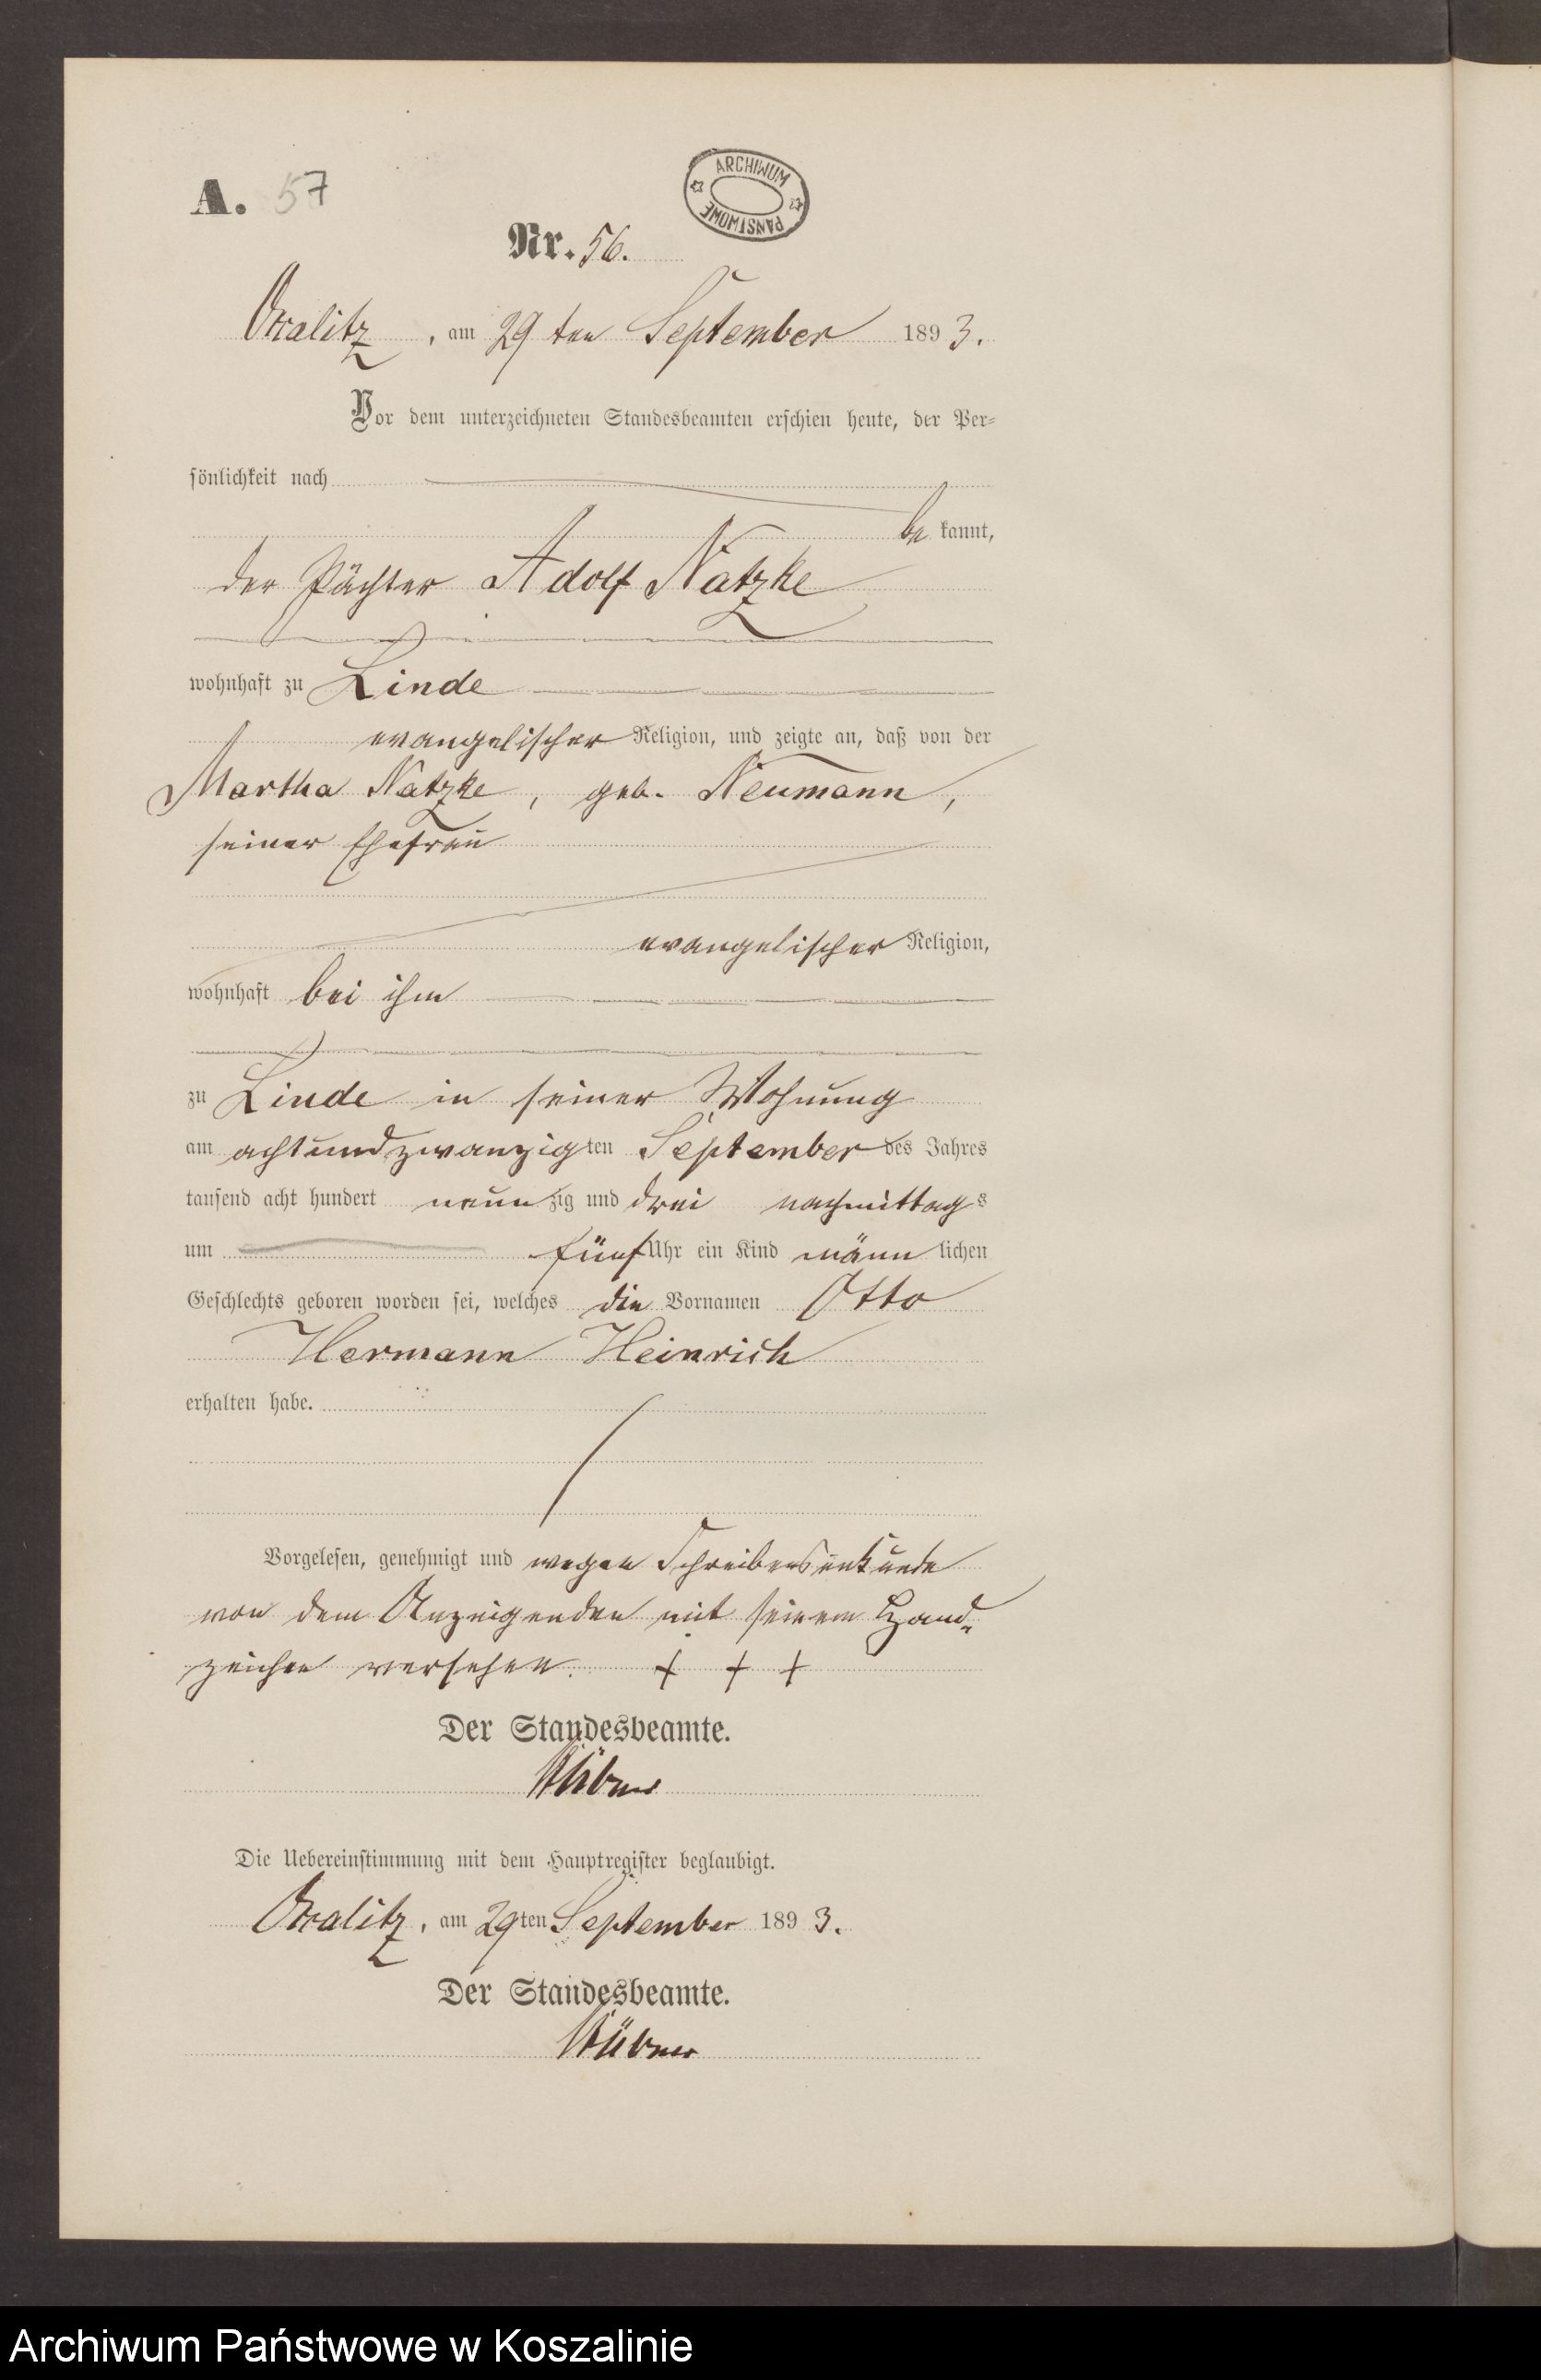 A. 57
ARCHIWUM PAŃSTWOWE
Nr. 56.
am 29 ten September 1893.
Vor dem unterzeichneten Standesbeamten erschien heute, der Per-
sönlichkeit nach
be kannt,
der Pächter Adolf Natzke
wohnhaft zu Linde
evangelischer Religion, und zeigte an, daß von der
Martha Natzke, geb. Neumann,
seiner Ehefrau
evangelischer Religion,
wohnhaft bei ihm
zu Linde in seiner Wohnung
am achtundzwanzigten September des Jahres
tausend acht hundert neunzig und drei nachmittags
um fünf Uhr ein Kind männlichen
Geschlechts geboren worden sei, welches die Vornamen Otto
Hermann Heinrich
erhalten habe.
Vorgelesen, genehmigt und wegen Schreibensunkunde
von dem Anzeigenden mit seinem Hand-
zeichen versehen. + + +
Der Standesbeamte.
Die Uebereinstimmung mit dem Hauptregister beglaubigt.
am 29ten September 1893.
Der Standesbeamte.
Archiwum Państwowe w Koszalinie